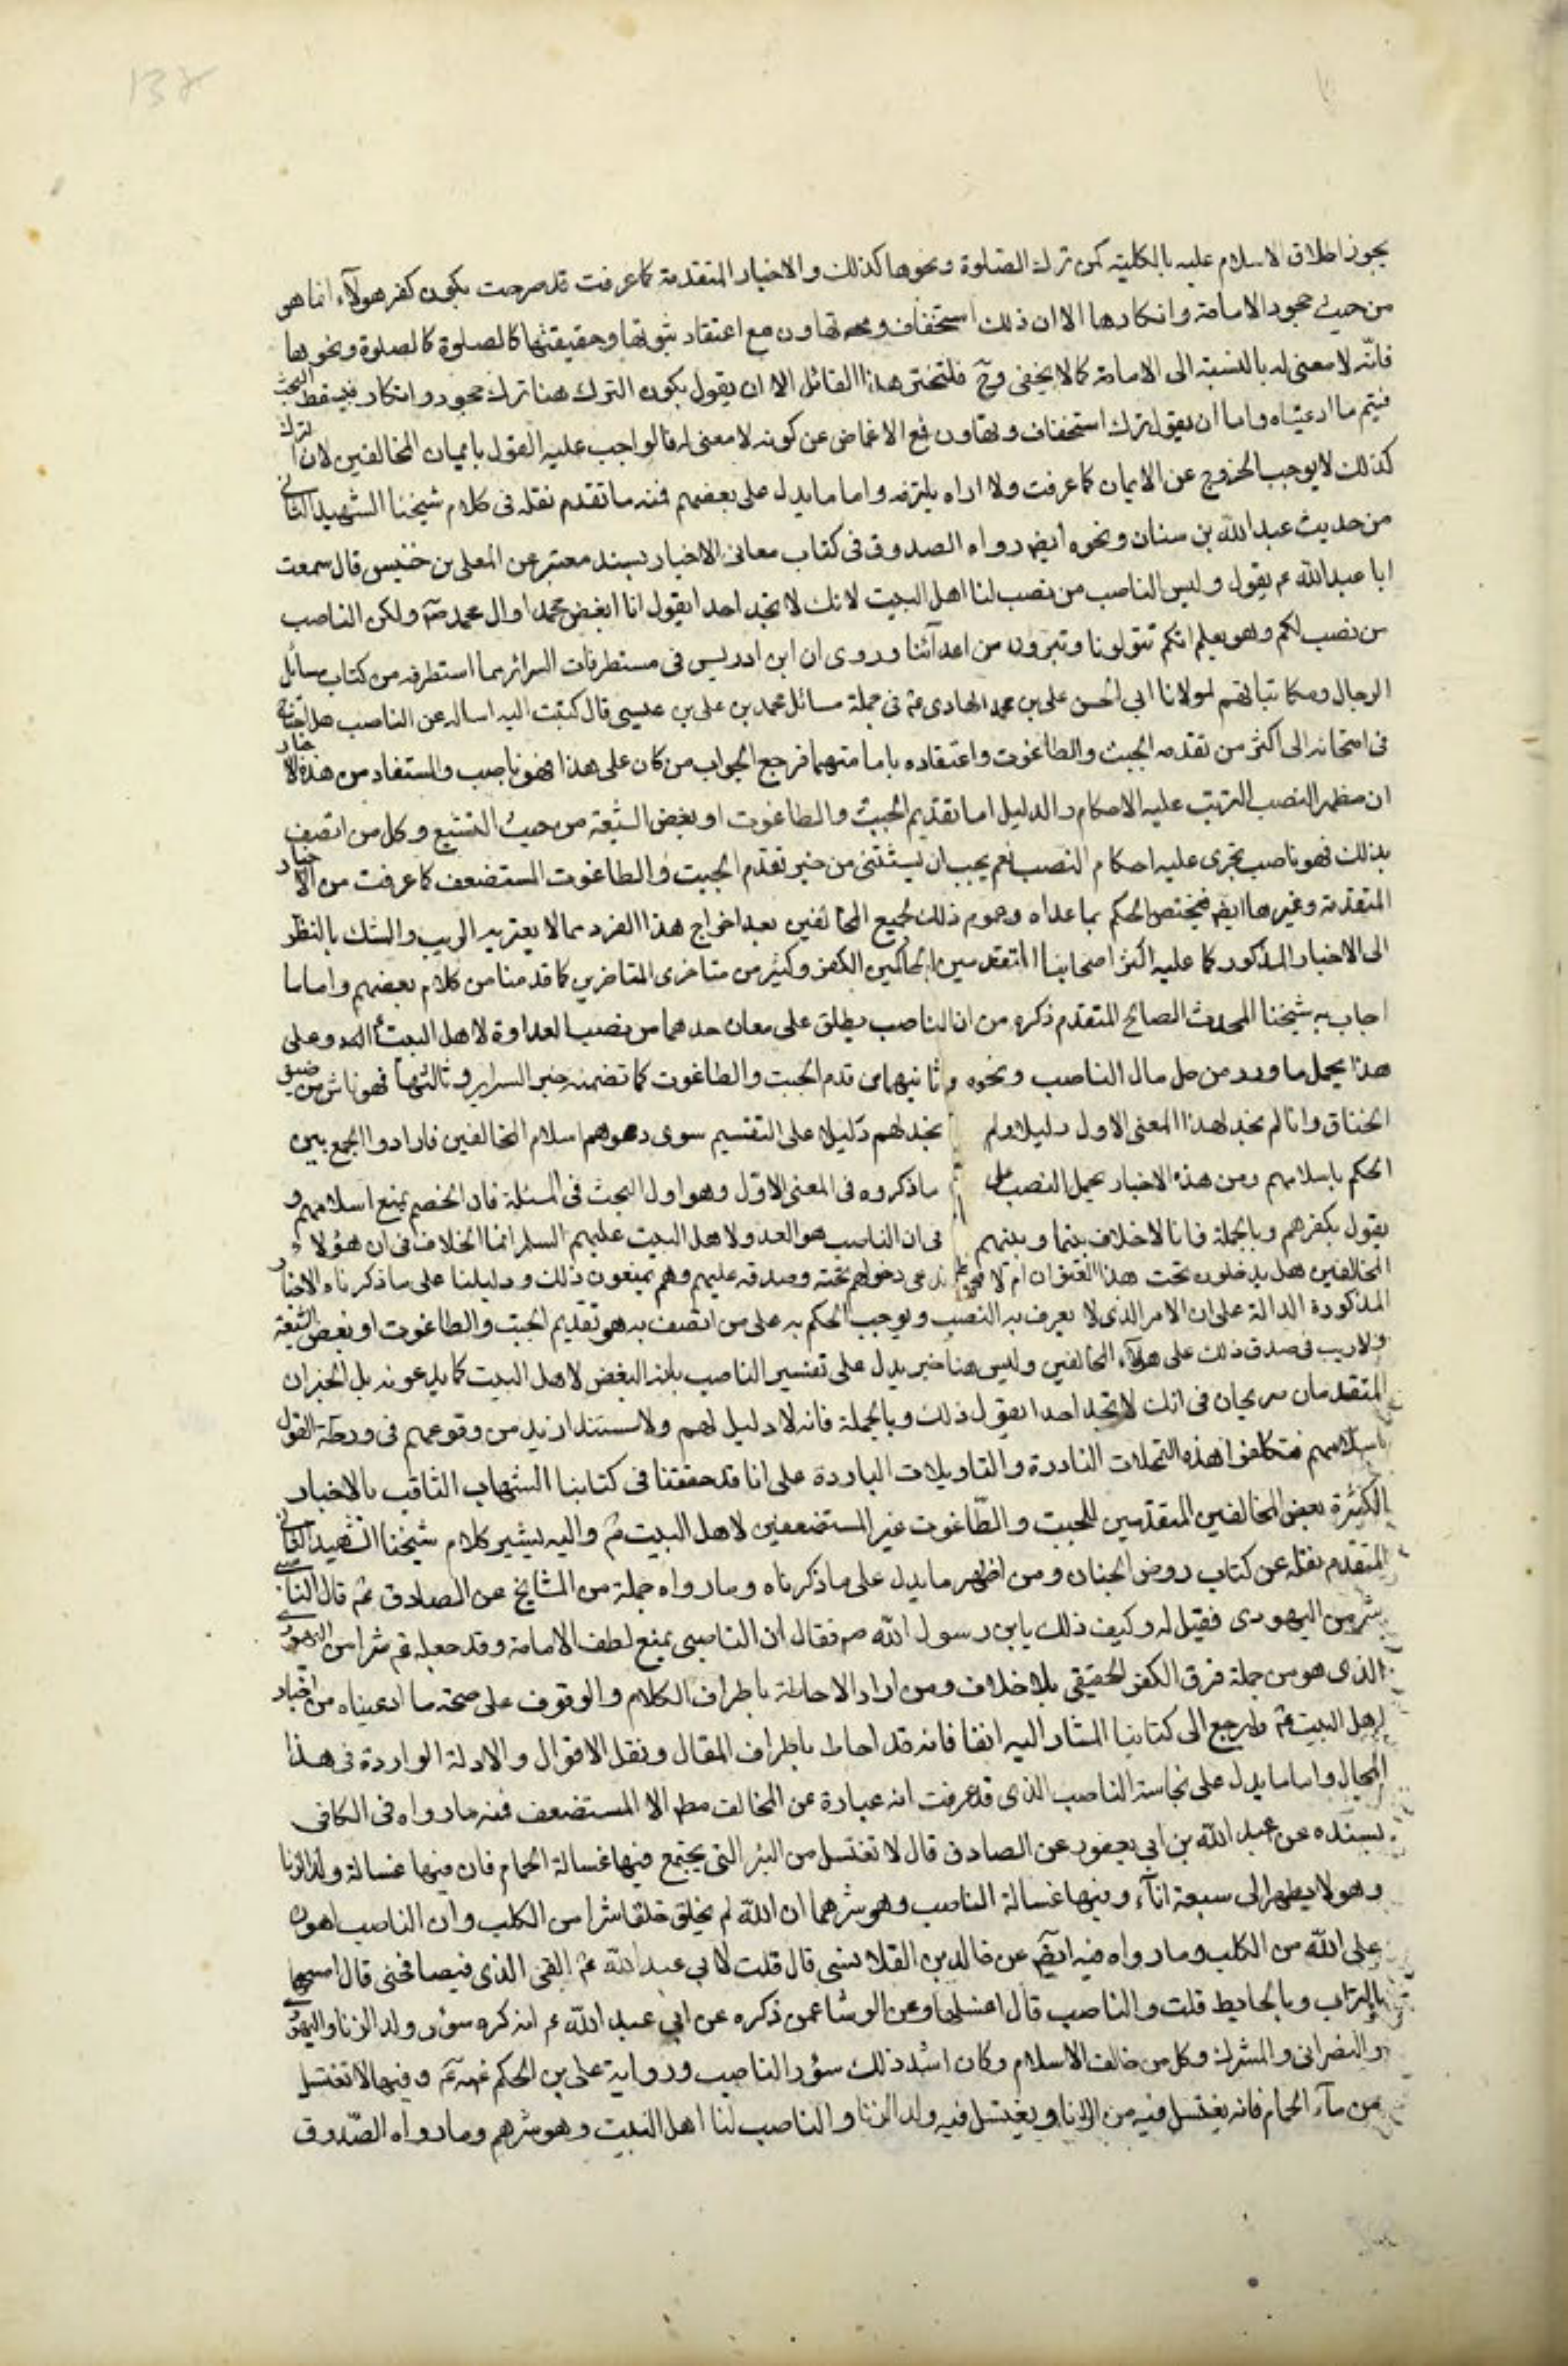 138
يجوز اطلاق الاسلام عليه بالكلية كمن ترك الصلوة ونحوها كذلك والاخبار المتقدمة كما عرفت قد صرحت بكون كفر هولآء انما هو
من حيث جحود الامامة وانكارها الا ان ذلك استخفاف وتهاون مع اعتقاد ثبوتها وحقيقتها كالصلوة كالصلوة ونحوها
فانّه لا معنى له بالنسبة الى الامامة كما لا يخفى وحّ فليختر هذا القائل اما ان يقول بكون الترك هنا ترك جحود وانكار فيسقط البحث
فيتم ما ادعيناه واما ان يقول ترك استخفاف وتهاون فمع الاغماض عن كونه لا معنى له فالواجب عليه القول بايمان المخالفين لان الترك
كذلك لا يوجب الخروج عن الايمان كما عرفت ولا اراه يلتزمه واما ما يدل على بعضهم فمنه ما تقدم نقله فى كلام شيخنا الشهيد الثانى
من حديث عبد الله بن سنان ونحوه ايضا رواه الصدوق فى كتاب معانى الاخبار بسند معتبر عن المعلى بن خنيس قال سمعت
ابا عبد الله ع يقول وليس الناصب من نصب لنا اهل البيت لانك لا تجد احدا يقول انا ابغض محمدا وال محمد صّ ولكن الناصب
من نصب لكم وهو يعلم انكم تتولونا وتبرون من اعدآئنا وروى ان ابن ادريس فى مستطرفات السرائر مما استطرفه من كتاب مسائل
الرجال ومكاتباتهم لمولانا ابى الحسن على بن محمد الهادى عّ فى جملة مسائل محمد بن على بن عيسى قال كتبت اليه اساله عن الناصب هل احتاج
فى امتحانه الى اكثر من تقدمه الجبت والطاغوت واعتقاده بامامتهما فرجع الجواب من كان على هذا فهو ناصب والمستفاد من هذه الاخبار
ان مظهر النصب المترتب عليه الاحكام والدليل اما تقديم الجبت والطاغوت او بغض الشيعة من حيث التشيع وكل من اتصف
بذلك فهو ناصب تجرى عليه احكام النصب نعم يجب ان يستثنى من خبر تقدم الجبت والطاغوت المستضعف كما عرفت من الاخبار
المتقدمة وغيرها ايضا فيختص الحكم بما عداه وعموم ذلك لجميع المخالفين بعد اخراج هذا الفرد مما لا يعتريه الريب والشك بالنظر
الى الاخبار المذكور كما عليه اكثر اصحابنا المتقدمين الحاكمين الكفر وكثير من متاخرى المتاخرين كما قدمنا من كلام بعضهم واما ما
اجاب به شيخنا المحدث الصالح المتقدم ذكره من ان الناصب يطلق على معان احدهما من نصب العداوة لاهل البيت وعلى
هذا يحمل ما ورد من حل مال الناصب ونحوه وثانيهما من قدم الجبت والطاغوت كما تضمنه خبر السراير وثالثها فهو ناش من ضيق
الخناق وانا لم نجد لهذا المعنى الاول دليلا ولم نجد لهم دليلا على التقسيم سوى دعوهم اسلام المخالفين فارادوا الجمع بين
الحكم باسلامهم ومن هذه الاخبار بحمل النصب على ما ذكروه فى المعنى الاوّل وهو اول البحث فى المسئلة فان الخصم يمنع اسلامهم و
يقول بكفرهم وبالجملة فانا لا خلاف بيننا وبينهم فى ان الناصب هو العدو لاهل البيت عليهم السلم انما الخلاف فى ان هؤلاء
المخالفين هل يدخلون تحت هذا العنوان ام لا فنحن ندعى دخولهم تحته وصدقه عليهم وهم يمنعون ذلك ودليلنا على ما ذكرناه الاخبار
المذكورة الدالة على ان الامر الذى لا يعرف به النصب ويوجب الحكم به على من اتصف به هو تقديم الجبت والطاغوت او بغض الشيعة
ولا ريب فى صدق ذلك على هولآء المخالفين وليس هنا خبر يدل على تفسير الناصب بانه البغض لاهل البيت كما يدعونه بل الخبران
المتقدمان صريحان فى انك لا تجد احدا يقول ذلك وبالجملة فانه لا دليل لهم ولا مستند ازيد من وقوعهم فى ورطة القول
باسلامهم فتكلفوا هذه التمحلات النادرة والتاويلات الباردة على انا قد حققنا فى كتابنا الشهاب الثاقب بالاخبار
الكثيرة بعض المخالفين المتقدمين للجبت والطّاغوت غير المستضعفين لاهل البيت عّ واليه يشير كلام شيخنا الشهيد الثانى
المتقدم نقله عن كتاب روض الجنان ومن اظهر ما يدل على ما ذكرناه وما رواه جملة من المشايخ عن الصادق عّ قال الناصبى
شر من اليهودى فقيل له وكيف ذلك يابن رسول الله ص فقال ان الناصبى يمنع لطف الامامة وقد جعله عّ شرا من اليهودى
الذى هو من جملة فرق الكفر الحقيقى بلا خلاف ومن اراد الاحاطة باطراف الكلام والوقوف على صحة ما ادعيناه من اخبار
اهل البيت عّ فليرجع الى كتابنا المشار اليه انفا فانه قد احاط باطراف المقال ونقل الاقوال والادلة الواردة فى هذا
المجال واما ما يدل على نجاسة الناصب الذى قد عرفت انه عبارة عن المخالف مطلقا الا المستضعف فمنه ما رواه فى الكافى
بسنده عن عبد الله بن ابى يعفور عن الصادق قال لا تغتسل من البئر التى يجتمع فيها غسالة الحمام فان فيها غسالة ولد الزنا
وهو لا يطهر الى سبعة انآء وفيها غسالة الناصب وهو شرهما ان الله لم يخلق خلقا شرا من الكلب وان الناصب اهون
على الله من الكلب وما رواه فيه ايضا عن خالد بن القلانسى قال قلت لابى عبد الله عّ القى الذمى فيصافحنى قال امسحها
بالتراب وبالحايط قلت والناصب قال اغسلها وعن الوشا عمن ذكره عن ابى عبد الله ع انه كره سؤر ولد الزنا واليهودى
والنصرانى والمشرك وكل من خالف الاسلام وكان اشد ذلك سؤر الناصب ورواية على بن الحكم عنه عّ وفيها لا تغتسل
من مآء الحمام فانه يغتسل فيه من الزنا ويغتسل فيه ولد الزنا والناصب لنا اهل البيت وهو شرهم وما رواه الصّدوق